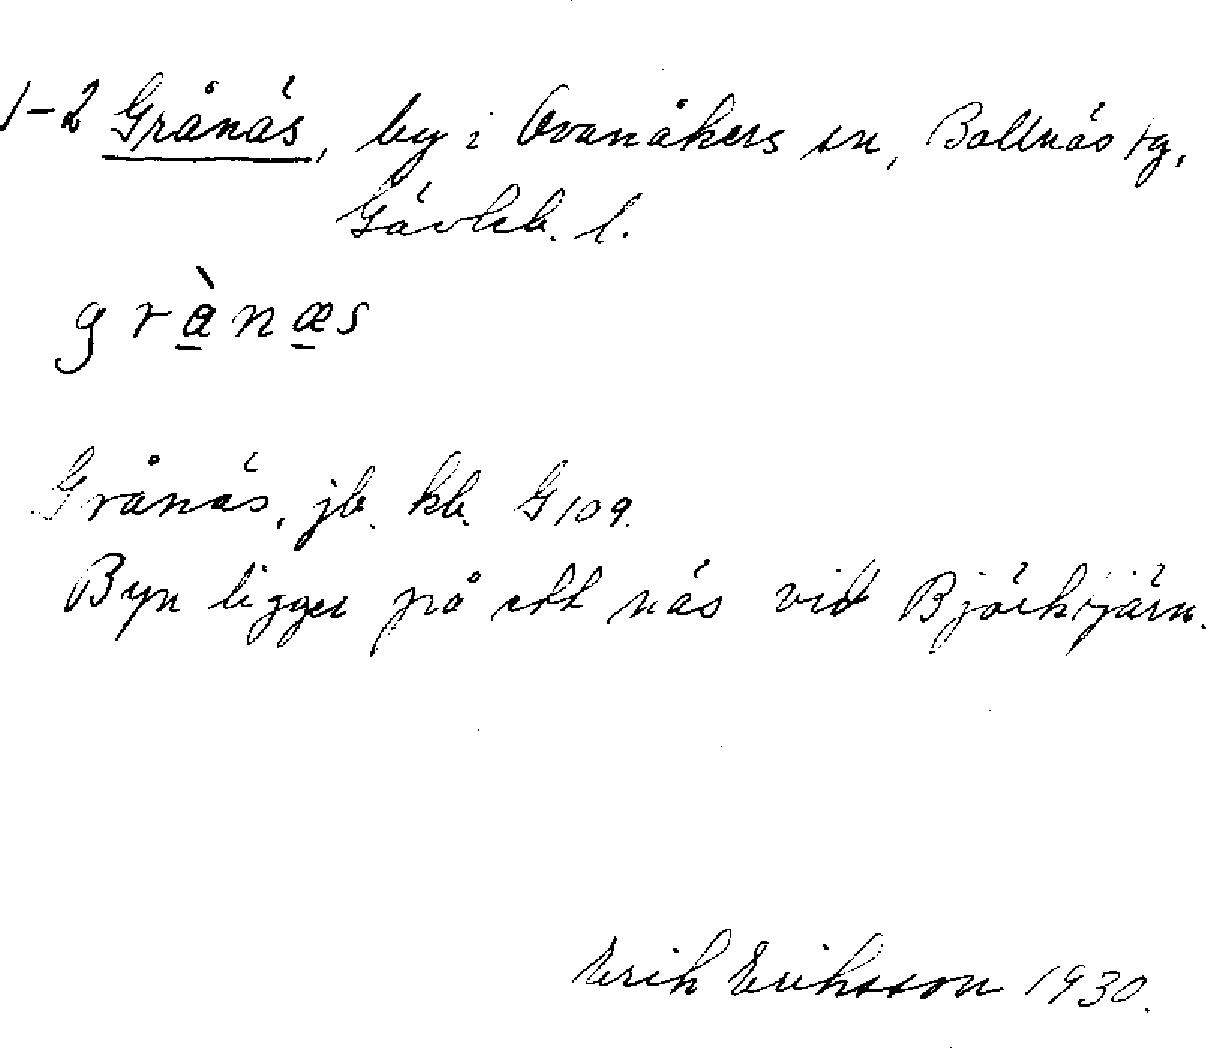 1-2 Grånäs, by i Ovanåkers sn, Bollnäs tg,
Gävleb. l.
grànæs
Grånäs, jb. kb. G 109.
Byn ligger på ett näs vid Björktjärn.
Erik Eriksson 1930.